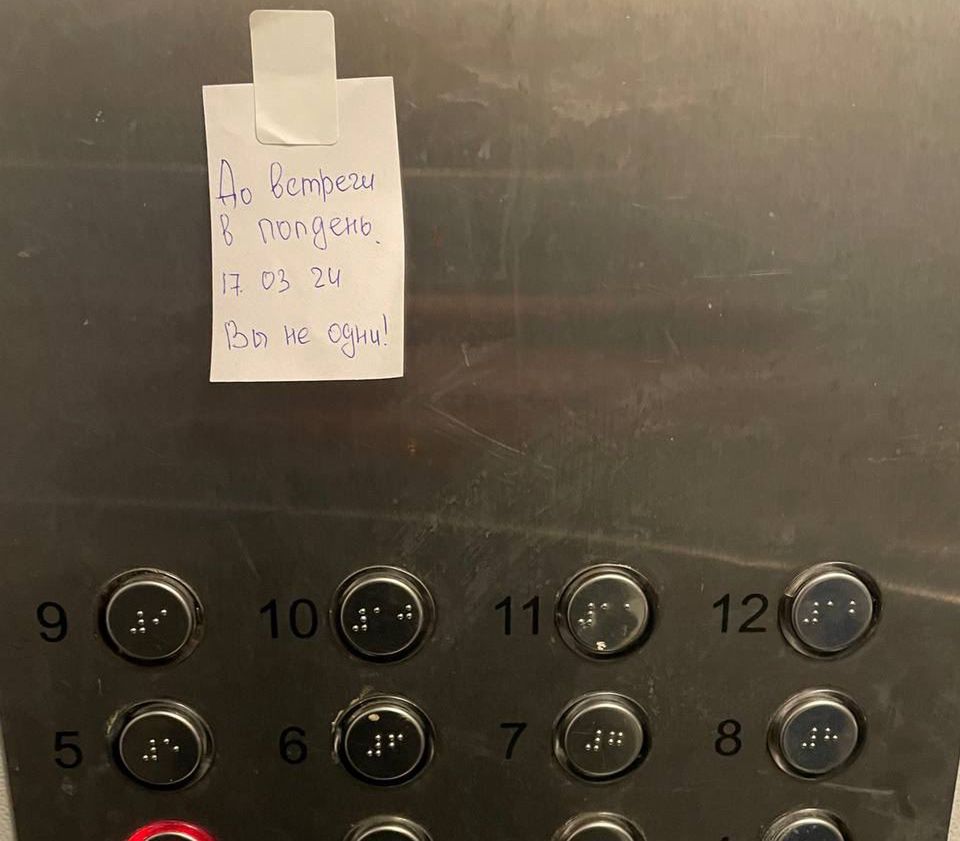 До встречи
в полдень.
17. 03 24
Вы не одни!
9 10 11 12
5 6 7 8